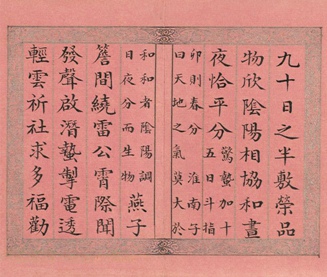 九十日之半敷榮品
物欣陰陽相協和晝
夜恰平分
驚蟄加十
五日斗指
卯則春分 淮南子
曰天地之氣莫大於
和和者陰陽調
日夜分而生物
燕子
簷間繞雷公霄際聞
發聲啟潛蟄掣電透
輕雲祈社求多福勸